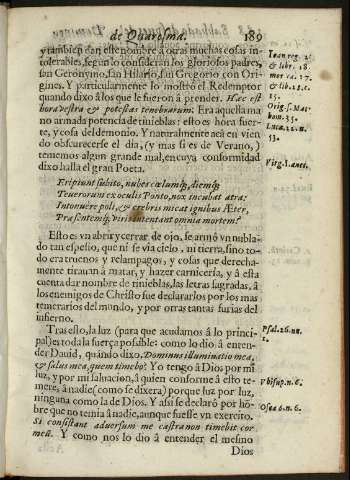 de Quaresma. 189
y tambien dan este nombre a otras muchas cosas in-
tolerables, segun lo consideran los gloriosos padres,
san Geronymo, san Hilario, san Gregorio, con Ori-
gines. Y particularmente lo mostrò el Redemptor
quando dixo â los que le fueron â prender. Hæc est
hora vestra & potestas tenebrarum. Era aquella ma
no armada potencia de tinieblas: esto es hora fuer-
te, y cosa del demonio. Y naturalmente acá en vien
do obscurecerse el dia, (y mas si es de Verano,)
tememos algun grande mal, en cuya conformidad
dixo halla el gran Poeta.
Eripiunt subito, nubes cœlumq, diemq;
Teucrorum ex oculis Ponto, nox incubat atra:
Intonuere poli, & crebris micat ignibus Æter,
Præsentemq; viris intentant omnia mortem?
Esto es vn abrir y cerrar de ojo, se armò vn nubla-
do tan espeso, que ni se via cielo, ni tierra, sino to-
do era truenos y relampagos, y cosas que derecha-
mente tirauan â matar, y hazer carniceria, y â esta
cuenta dar nombre de tinieblas, las letras sagradas, â
los enemigos de Christo fue declararlos por los mas
temerarios del mundo, y por otras tantas furias del
infierno.
Tras esto, la luz (para que acudamos â lo princi-
pal) es toda la fuerça possible: como lo diò â enten-
der Dauid, quando dixo, Dominus illuminatio mea,
& salus mea, quem timebo? Yo tengo â Dios por mi
luz, y por mi saluacion, â quien conforme â esto te-
mere, â nadie (como se dixera) porque luz por luz,
ninguna como la de Dios. Y assi se declarò por hõ-
bre que no temia â nadie, aunque fuesse vn exercito.
Si consistant aduersum me castra non timebit cor
meũ. Y como nos lo dio â entender el mesmo
Dios
& libr. 18.
mor. ca. 17.
& lib. 25. c.
15.
Orig. s. Mat.
hom. 35.
Luca. 22. n.
53.
Virg. 1. ænei.
Psal. 26. nu.
1.
Vbi sup. n. 6.
Osea 6. n. 6.